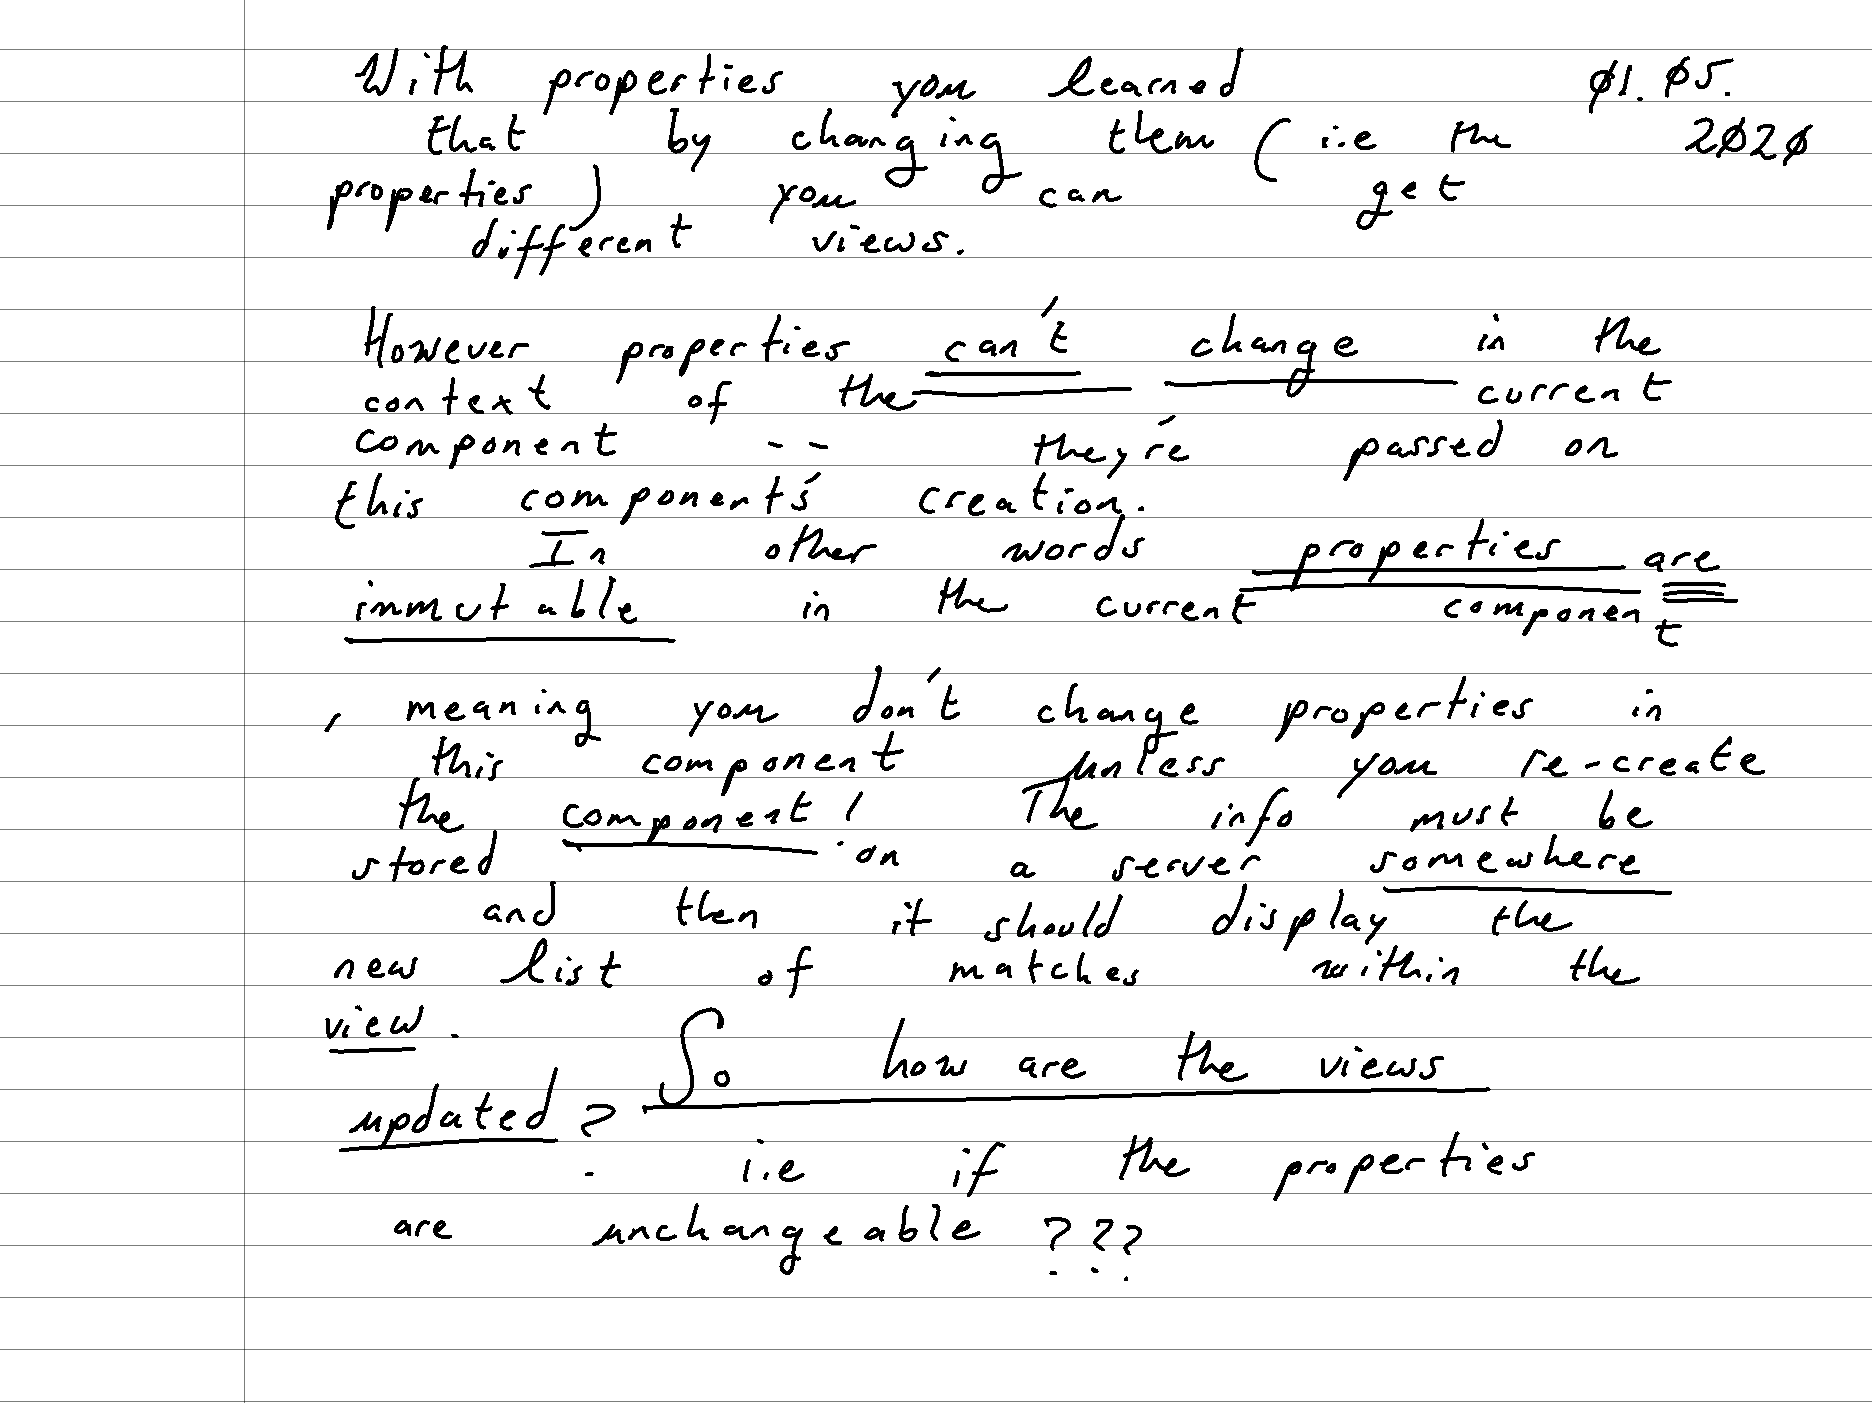 With properties you learned
01.05.
2020
that by changing them (i.e the
properties) you can get
different views.
However properties can't change in the
context of the current
component -- they're passed on
this component's creation.
In other words properties are
immutable in the current component
, meaning you don't change properties in
this component unless you re-create
the component! The info must be
stored on a server somewhere
and then it should display the
new list of matches within the
view.
So how are the views
updated?
i.e if the properties
are unchangeable ???